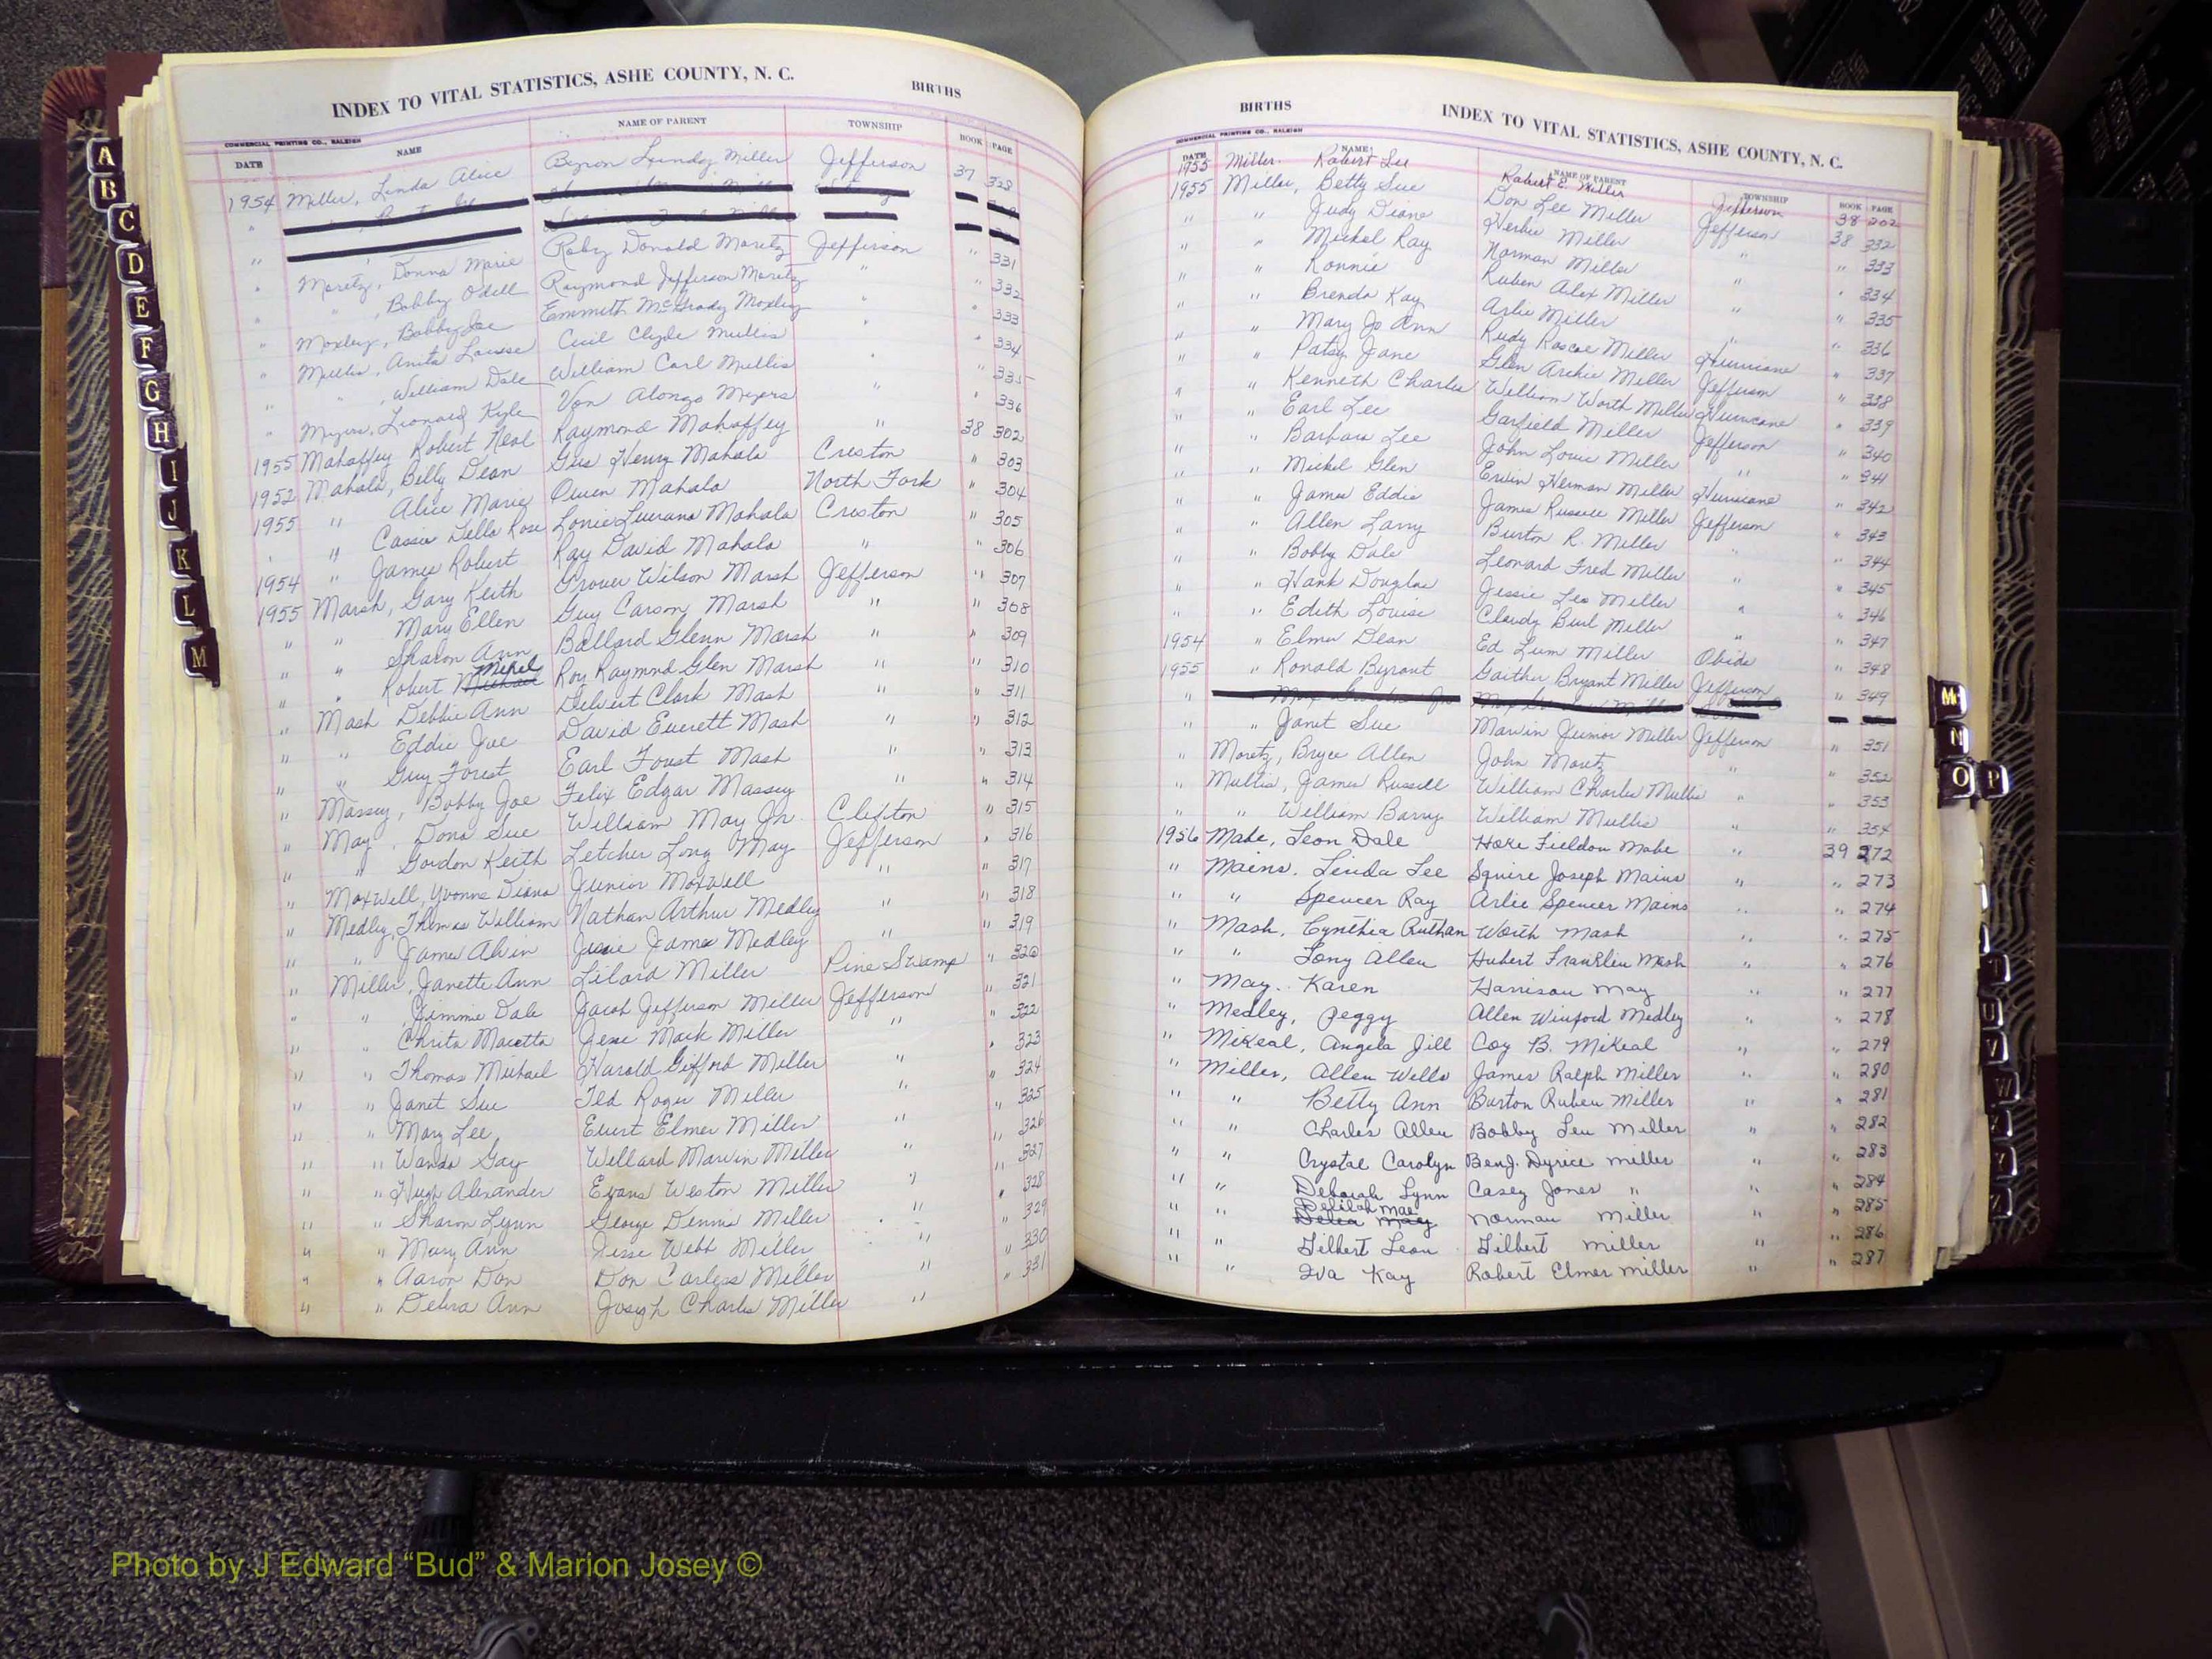 INDEX TO VITAL STATISTICS, ASHE COUNTY, N. C. BIRTHS
COMMERCIAL PRINTING CO., RALEIGH
DATE NAME NAME OF PARENT TOWNSHIP BOOK PAGE
1954 Miller, Linda Alice Byron Miller Jefferson 37 328
" Moretz, Donna Marie Roby Donald Moretz Jefferson " 331
" " , Bobby Odell Raymond Jefferson Moretz " " 332
" Moxley, Bobby Joe Emmitt McGrady Moxley " " 333
" Mullis, Anita Louise Cecil Clyde Mullis " " 334
" " , William Dale William Carl Mullis " " 335
" Myers, Leonard Kyle Von Alonzo Myers " " 336
1955 Mahaffey Robert Neal Raymond Mahaffey " 38 302
1952 Mahala, Billy Dean Gus Henry Mahala Creston " 303
1955 " Alice Marie Owen Mahala North Fork " 304
" " Cassie Della Rose Lonie Mahala Creston " 305
1954 " James Robert Ray David Mahala " " 306
1955 Marsh, Gary Keith Grover Wilson Marsh Jefferson " 307
" " Mary Ellen Guy Carson Marsh " " 308
" " Sharon Ann Ballard Glenn Marsh " " 309
" " Robert Mikel Roy Raymond Glen Marsh " " 310
" Mash Debbie Ann Delbert Clark Mash " " 311
" " Eddie Joe David Everett Mash " " 312
" " Guy Forest Earl Foust Mash " " 313
" Massey, Bobby Joe Felix Edgar Massey " " 314
" May, Dona Sue William May Jr. Clifton " 315
" " Gordon Keith Letcher Long May Jefferson " 316
" Maxwell, Yvonne Diana Junior Maxwell " " 317
" Medley, Thomas William Nathan Arthur Medley " 318
" " James Alvin Jessie James Medley " " 319
" Miller, Janette Ann Lilard Miller Pine Swamp " 320
" " Jimmie Dale Jacob Jefferson Miller Jefferson " 321
" " Christa Maretta Jene Mack Miller " " 322
" " Thomas Michael Harold Gifford Miller " " 323
" " Janet Sue Ted Roger Miller " " 324
" " Mary Lee Evert Elmer Miller " " 325
" " Wanda Gay Willard Marvin Miller " " 326
" " Hugh Alexander Evans Weston Miller " " 327
" " Sharon Lynn George Dennis Miller " " 328
" " Mary Ann Jesse Webb Miller " " 329
" " Aaron Don Don Carlyss Miller " " 330
" " Debra Ann Joseph Charles Miller " " 331
BIRTHS INDEX TO VITAL STATISTICS, ASHE COUNTY, N. C.
COMMERCIAL PRINTING CO., RALEIGH
DATE NAME NAME OF PARENT TOWNSHIP BOOK PAGE
1955 Miller, Robert Lee Robert E. Miller Jefferson 38 202
1955 Miller, Betty Sue Don Lee Miller Jefferson 38 332
" " Judy Diane Herbie Miller " " 333
" " Mickel Ray Norman Miller " 334
" " Ronnie Ruben Alex Miller " " 335
" " Brenda Kay Arlie Miller " " 336
" " Mary Jo Ann Rudy Roscoe Miller Hurricane " 337
" " Patsy Jane Glen Archie Miller Jefferson " 338
" " Kenneth Charles William Worth Miller Hurricane " 339
" " Earl Lee Garfield Miller Jefferson " 340
" " Barbara Lee John Louie Miller " " 341
" " Mickel Glen Erwin Herman Miller Hurricane " 342
" " James Eddie James Russell Miller Jefferson " 343
" " Allen Larry Burton R. Miller " " 344
" " Bobby Dale Leonard Fred Miller " " 345
" " Hank Douglas Jessie Lee Miller " " 346
" " Edith Louise Claudy Burl Miller " " 347
1954 " Elmer Dean Ed Lum Miller Obids " 348
1955 " Ronald Byrant Gaither Bryant Miller Jefferson " 349
" " Janet Sue Marvin Junior Miller Jefferson " 351
" Moretz, Bryce Allen John Moretz " " 352
" Mullis, James Russell William Charles Mullis " " 353
" " William Barry William Mullis " " 354
1956 Mabe, Leon Dale Hoke Fieldon Mabe " 39 272
" Mains, Linda Lee Squire Joseph Mains " " 273
" " Spencer Ray Arlie Spencer Mains " " 274
" Mash, Cynthia Ruthan Worth Mash " " 275
" " Tony Allen Hubert Franklin Mash " " 276
" May, Karen Harrison May " " 277
" Medley, Peggy Allen Winford Medley " " 278
" Mikeal, Angela Jill Coy B. Mikeal " " 279
" Miller, Allen Wells James Ralph Miller " " 280
" " Betty Ann Burton Ruben Miller " " 281
" " Charles Allen Bobby Leu Miller " " 282
" " Crystal Carolyn Benj. Dyrice Miller " " 283
" " Deborah Lynn Casey Jones " " " 284
" " Delilah Mae Norman Miller " " 285
" " Gilbert Leon Gilbert Miller " " 286
" " Iva Kay Robert Elmer Miller " " 287
A
B
C
D
E
F
G
H
I
J
K
L
M
Mc
N
O P
Photo by J Edward “Bud” & Marion Josey ©